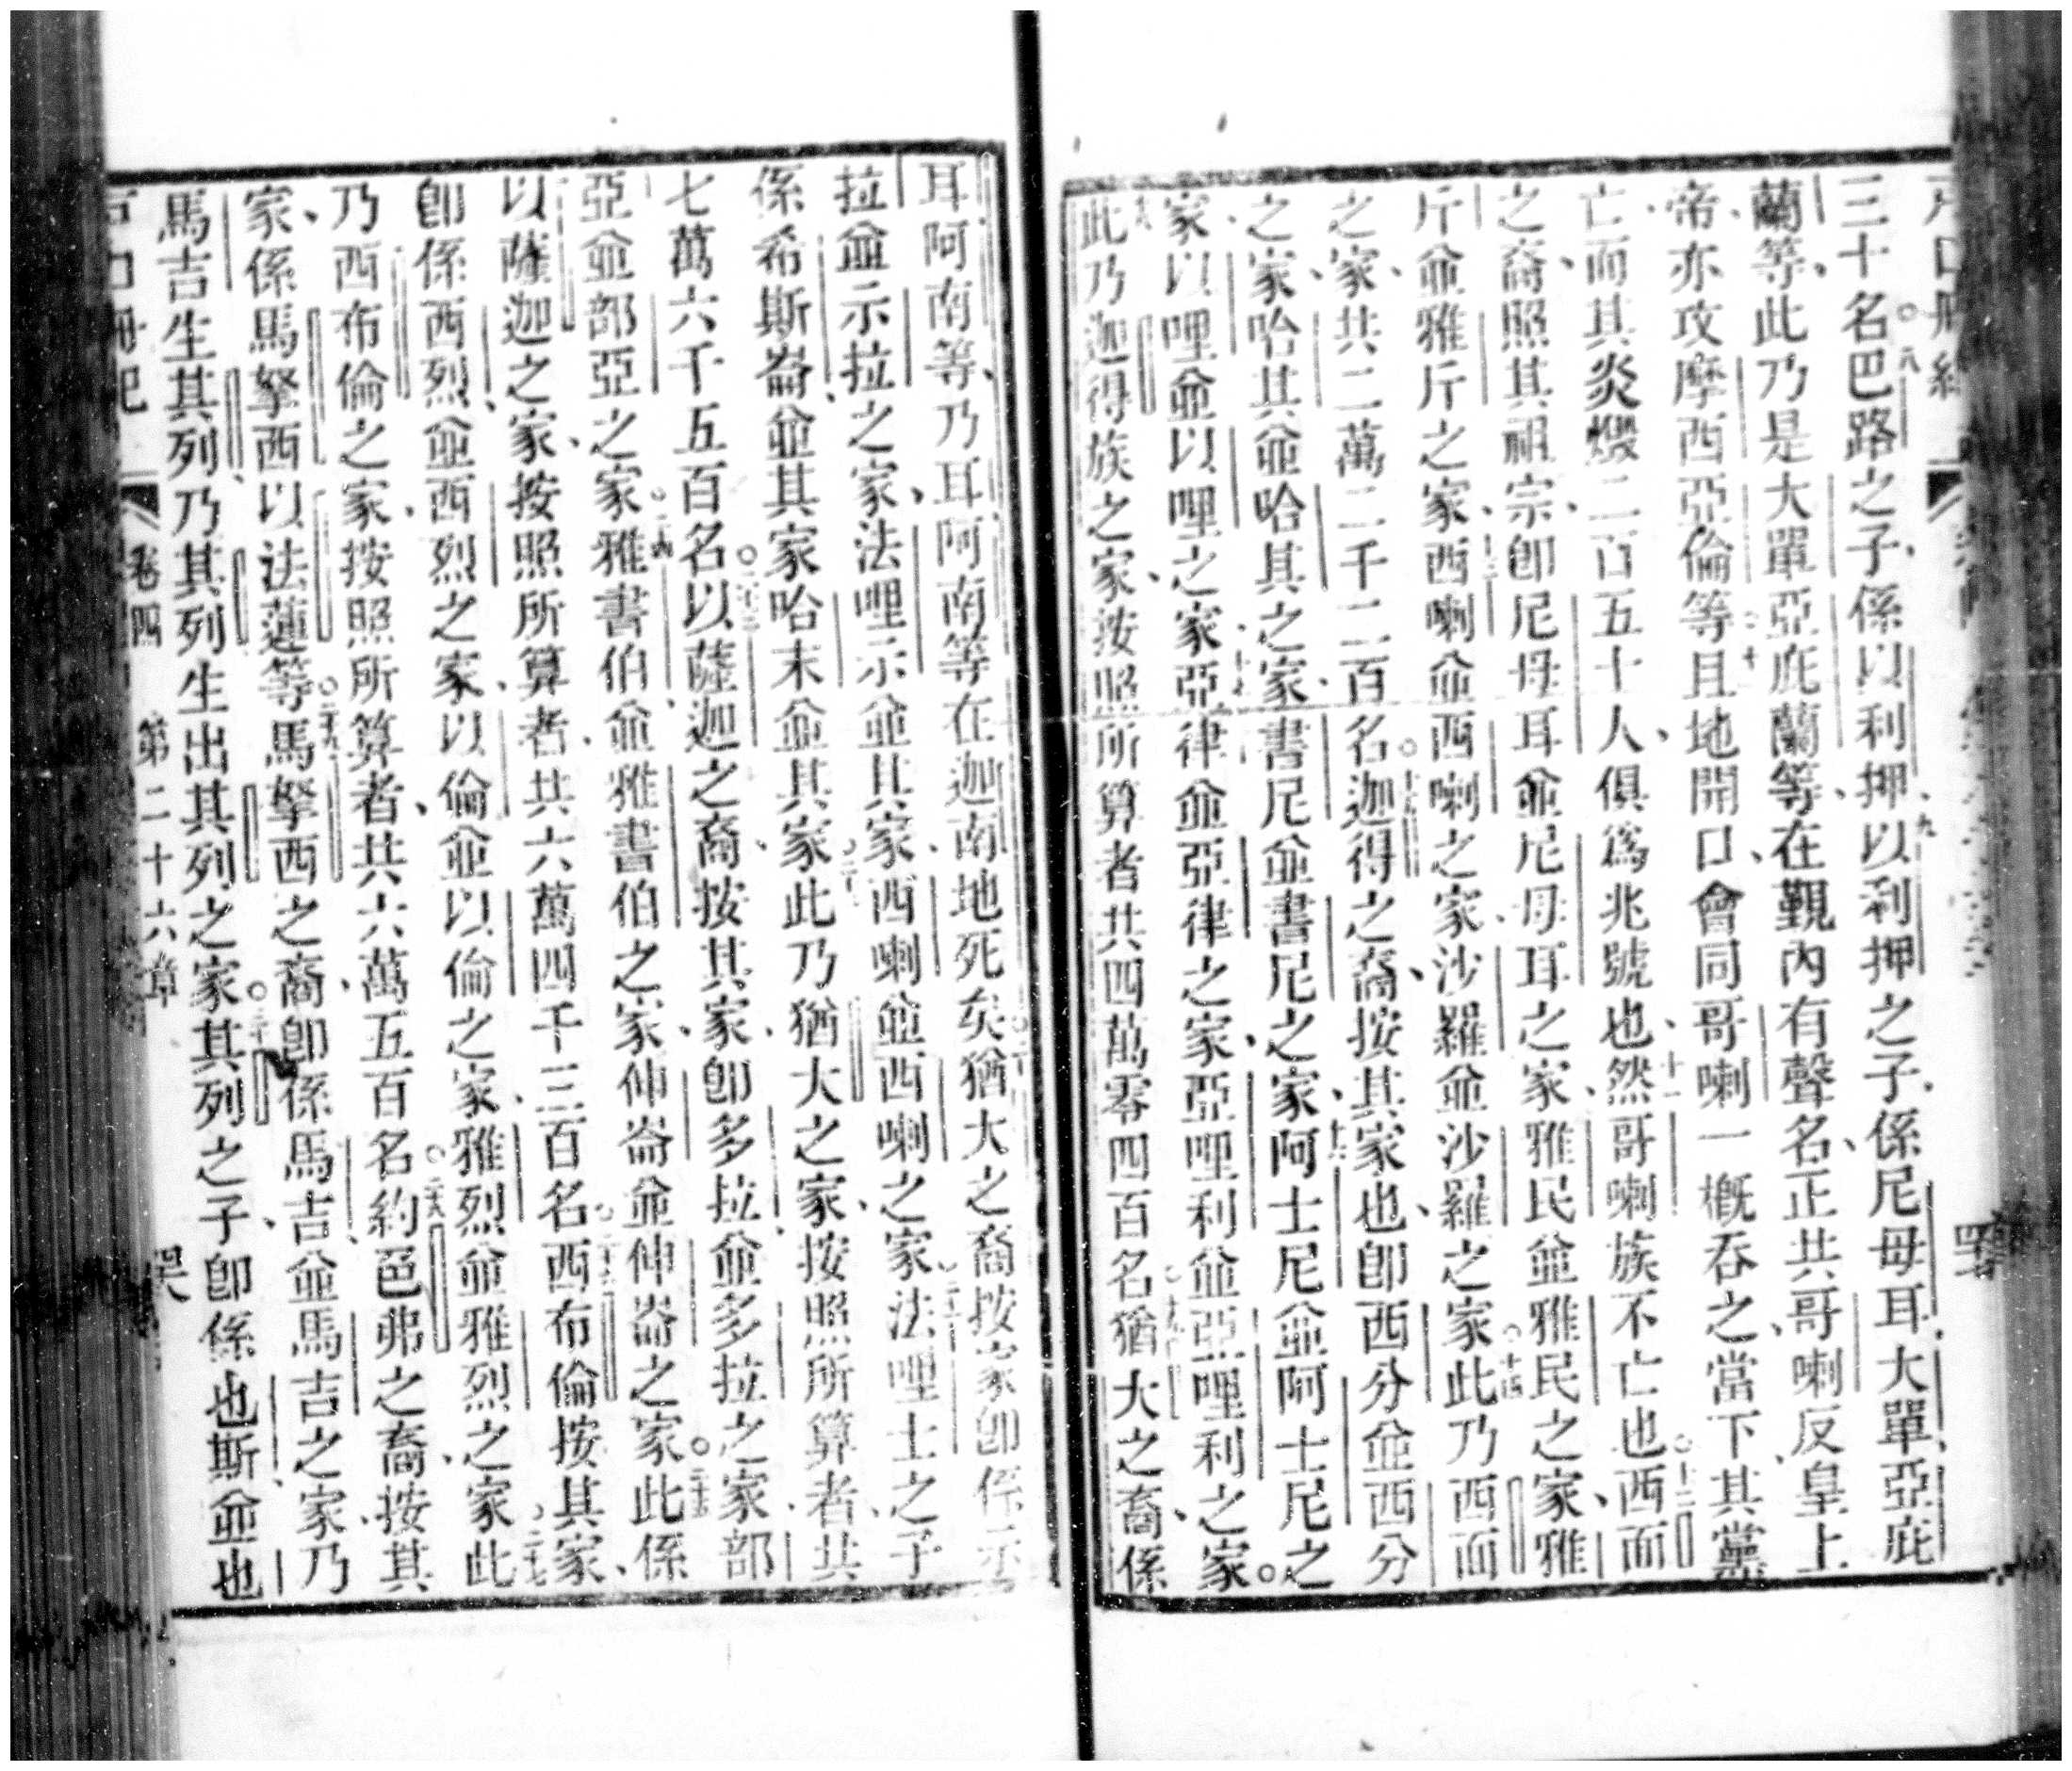 三十名○八巴路之子、係以利押、九以利押之子、係尼母耳、大單、亞庇
蘭等、此乃是大單亞庇蘭等、在覲內有聲名、正共哥喇反皇上
帝、亦攻摩西亞倫等○十且地開口、會同哥喇一槪吞之、當下其黨
亡而其炎燬二百五十人、俱爲兆號也、十一然哥喇族不亡也○十二西面
之裔、照其祖宗、卽尼母耳並尼母耳之家、雅民並雅民之家、雅
斤並雅斤之家、十三西喇並西喇之家、沙羅並沙羅之家○十四此乃西面
之家、共二萬二千二百名○十五迦得之裔、按其家也、卽西分並西分
之家、哈其並哈其之家、書尼並書尼之家、十六阿士尼並阿士尼之
家、以哩並以哩之家、十七亞律並亞律之家、亞哩利並亞哩利之家○
十八此乃迦得族之家、按照所算者共四萬零四百名○十九猶大之裔、係
耳阿南等、乃耳阿南等在迦南地死矣○二十猶大之裔按家卽係示
拉並示拉之家、法哩示並其家、西喇並西喇之家○二十一法哩士之子
係希斯崙並其家、哈末並其家○二十二此乃猶大之家、按照所算者、共
七萬六千五百名○二十三以薩迦之裔、按其家、卽多拉並多拉之家、部
亞並部亞之家○二十四雅書伯並雅書伯之家、伸崙並伸崙之家○二十五此係
以薩迦之家、按照所算者、共六萬四千三百名○二十六西布倫按其家、
卽係西烈並西烈之家、以倫並以倫之家、雅烈並雅烈之家○二十七此
乃西布倫之家、按照所算者、共六萬五百名○二十八約色弗之裔、按其
家、係馬拏西以法蓮等○二十九馬拏西之裔、卽係馬吉並馬吉之家、乃
馬吉生其列、乃其列生出其列之家○三十其列之子、卽係也斯並也
戶口冊紀 卷四 第二十六章